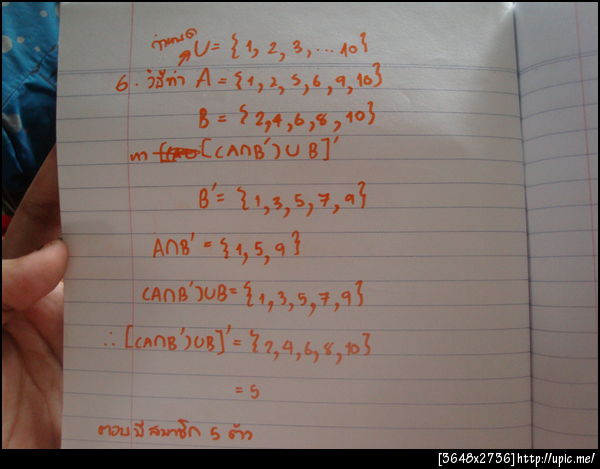 กำหนด U = {1, 2, 3, ... 10}
6. วิธีทำ A = {1, 2, 5, 6, 9, 10}
B = {2, 4, 6, 8, 10}
หา [(A∩B')∪B]'
B' = {1, 3, 5, 7, 9}
A∩B' = {1, 5, 9}
(A∩B')∪B = {1, 3, 5, 7, 9}
∴ [(A∩B')∪B]' = {2, 4, 6, 8, 10}
= 5
ตอบ มีสมาชิก 5 ตัว
[3648x2736]http://upic.me/